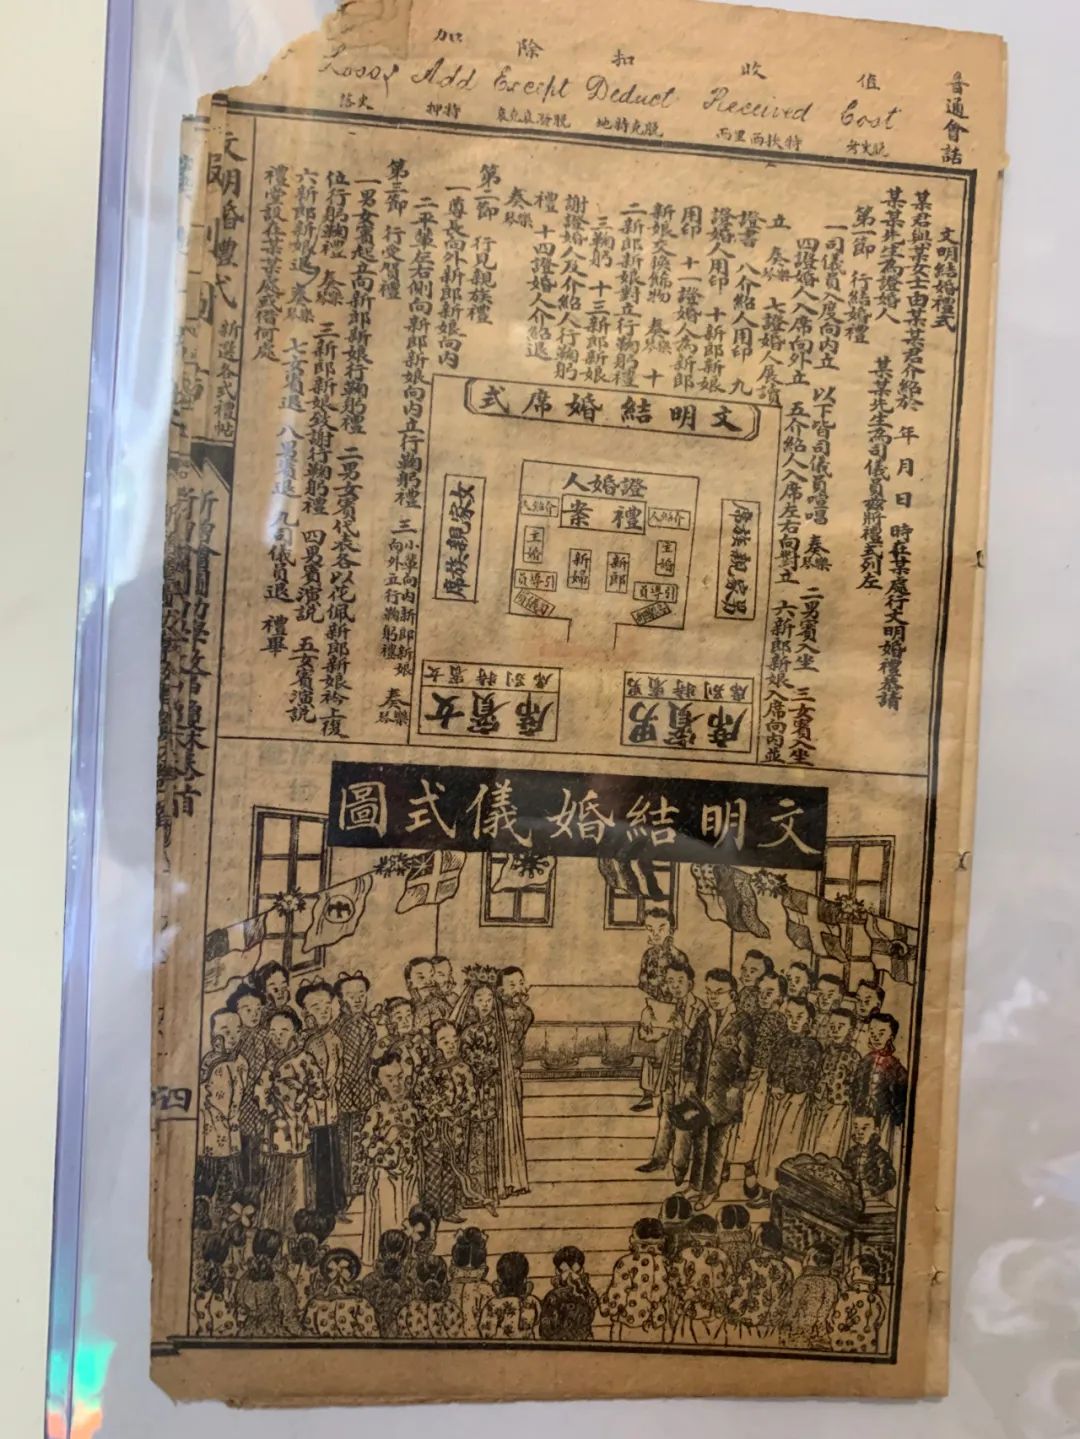 普通會話
值 收 扣 除 加
Cost Received Deduct Except Add Loss
考史脫 西里西扶特 地特克脫 押特 洛史
文明結婚禮式
某君與某女士由某某君介紹於 年 月 日 時在某處行文明婚禮恭請
某某先生為證婚人 某某先生為司儀員茲將禮式列左
第一節 行結婚禮
一司儀員入席向內立 以下皆司儀員唱唱 奏樂琴 二男賓入坐 三女賓入坐
四證婚人入席向外立 五介紹人入席左右向對立 六新郎新娘入席向內並
立 奏樂琴 七證婚人展讀
證書 八介紹人用印 九
證婚人用印 十新郎新娘
用印 十一證婚人為新郎
新娘交換飾物 奏樂琴 十
二新郎新娘對立行鞠躬禮
三鞠躬 十三新郎新娘
謝證婚人及介紹人行鞠躬
禮 十四證婚人介紹退
奏樂琴
第二節 行見親族禮
一尊長向外新郎新娘向內
二平輩左右側向新郎新娘向內立行鞠躬禮 三小輩向內新郎新娘向外立行鞠躬禮 奏樂琴
第三節 行受賀禮
一男女賓起立向新郎新娘行鞠躬禮 二男女賓代表各以花佩新郎新娘衿上後
位行鞠躬禮 奏樂琴 三新郎新娘致謝行鞠躬禮 四男賓演說 五女賓演說
六新郎新娘退 奏樂琴 七女賓退 八男賓退 九司儀員退 禮畢
禮堂設在某某處或借何處
文明結婚席式
證婚人
禮案
介紹人 介紹人
主婚 主婚
新郎 新婦
引導員 引導員
男族親戚席
女家親族席
男賓特別席
男賓席
女賓特別席
女賓席
文明結婚儀式圖
文明婚禮式
新選各式禮帖
四